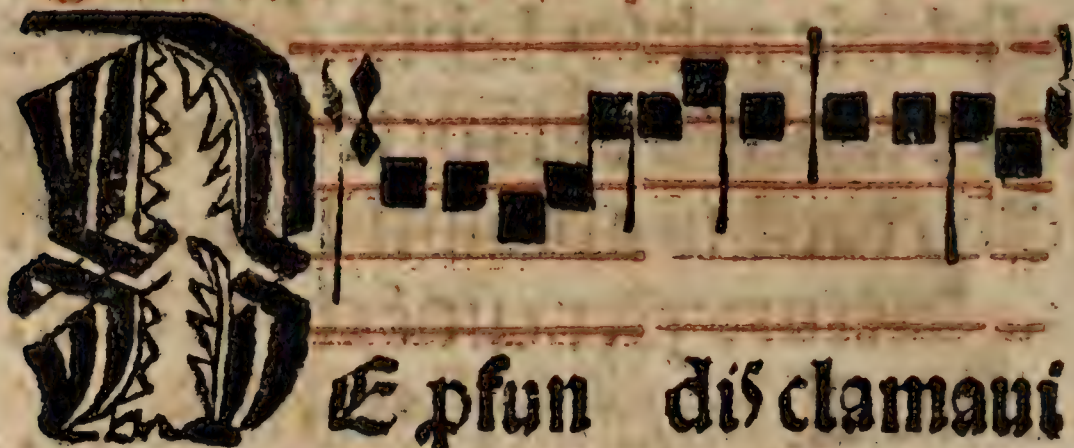 DE ꝓfun dis clamaui